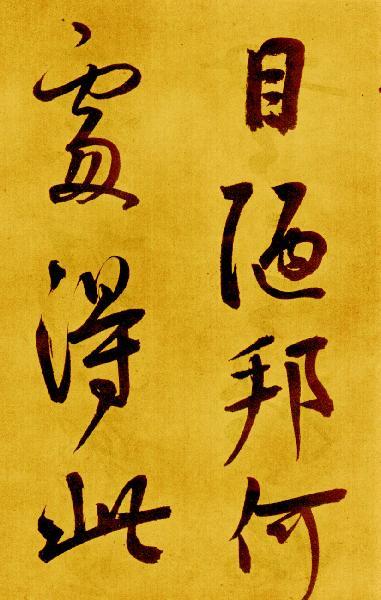 目陋邦何
處得此